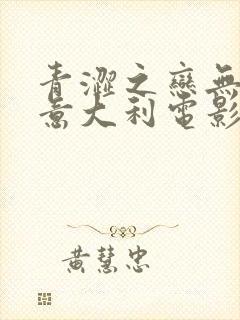 青澀之戀無
意大利電影
黃慧忠